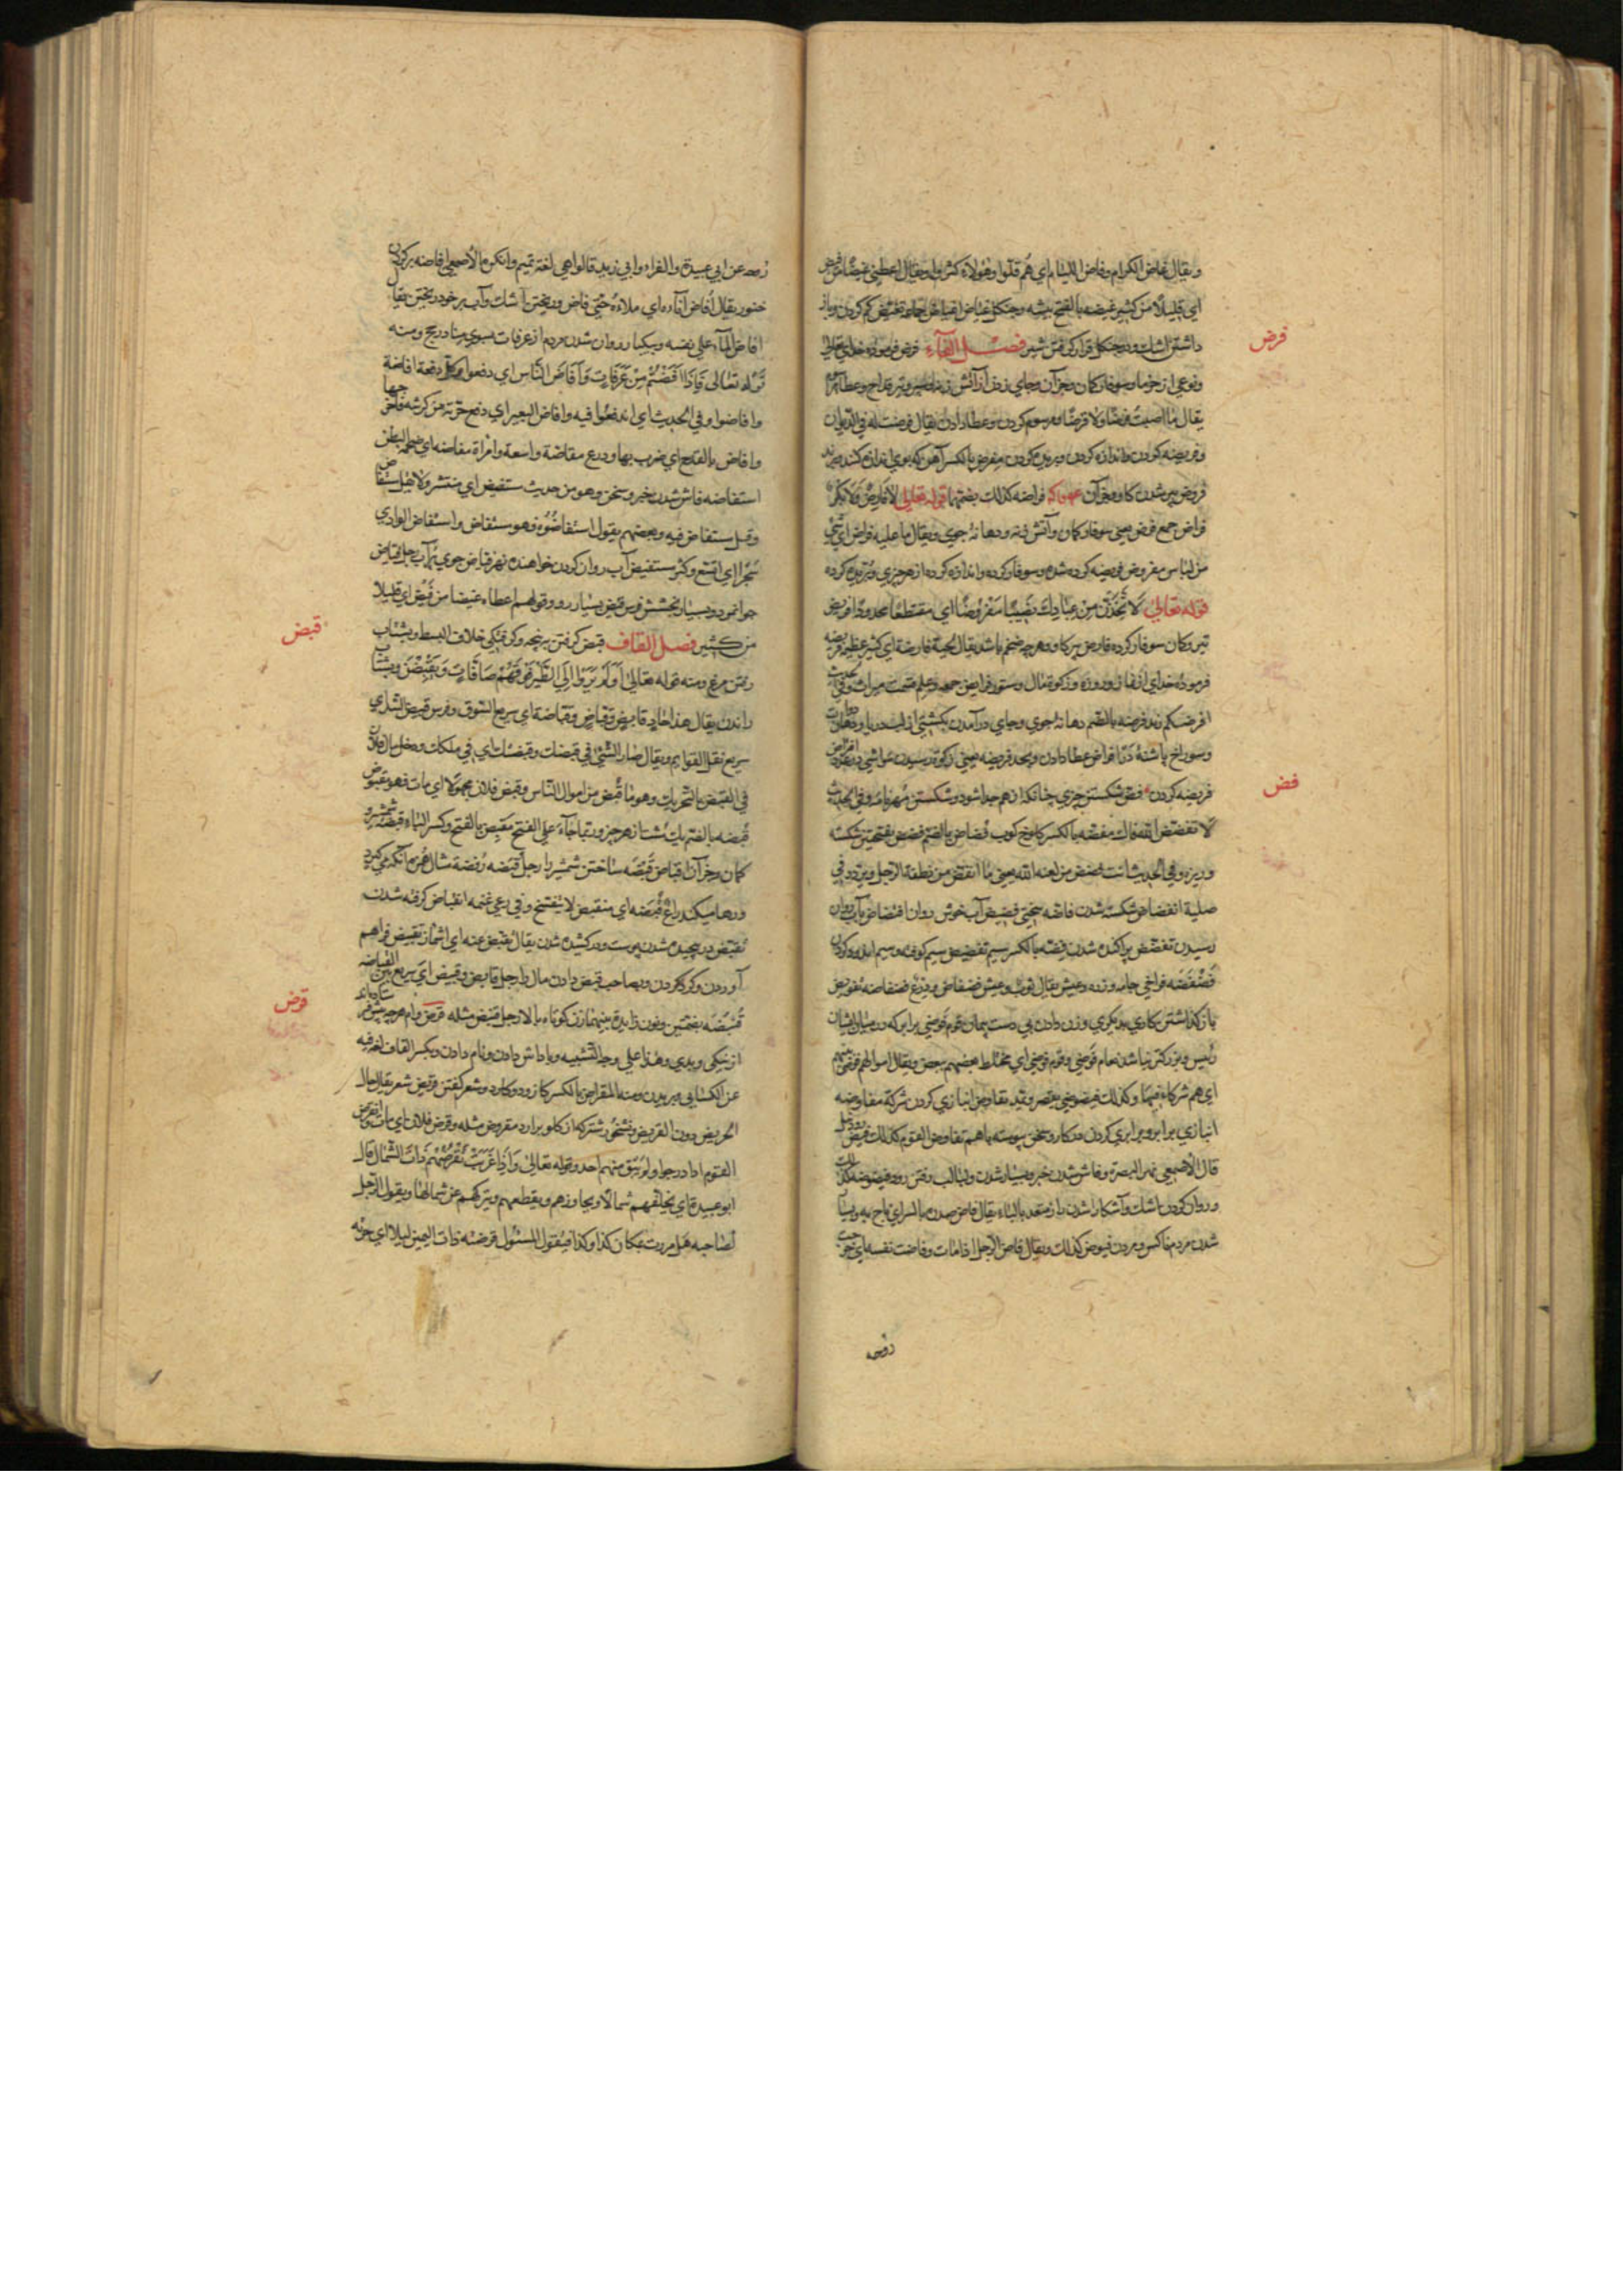 ويقال غاض الكرام وفاض اللئام اي هم قلوا وهؤلاء كثروا ويقال اعطي غيضا من فيض
اي قليلا من كثير غيضه بالفتح بيشه وجنكل غياض اغياض جماعه تغييض كم كردن وباز
داشتن اشك ودر جنكل قرار كرفتن شير فصل الفاء فرض فرموده خداي تعالي
فرض
ونوعي از خرما وسوفار كمان وجز آن وجاي زدن از آتش زنه
يقال ما اصبت فرضا ولا قرضا ومرسوم كردن وعطا دادن يقال فرضت له في الديوان
وفريضه كردن واندازه كردن وبريدن مفرض بالكسر آهن كه بوي اندازه كنند
فروض پير شدن كاو وجز آن فراضه كذلك بضمتهما قوله تعالى لا فارض ولا بكر
فراض جمع فرض يعني سوفار كمان وآتش زنه ودهانه جوي ويقال ما عليه فراض اي شيئ
من لباس مفروض فريضه كرده شده وسوفار كرده واندازه كرده از هر چيزي وبريده كرده
قوله تعالى لاتخذن من عبادك نصيبا مفروضا اي مقتطعا محدودا فريض
تير وكمان سوفار كرده فارض پير كاو وهرچه ضخم باشد يقال لحية فارضة اي كثير عظيم فريضه
فرموده خداي از نماز وروزه وزكوة مال ودستور فرايض جمع وعلم قسمت ميراث وفي الحديث
افرضكم زيد فرضه بالضم دهانه جوي وجاي در آمدن بكشتي از لب دريا
وسوراخ پاشنه در افراض عطا دادن وبحد فريضه يعني زكوة رسيدن مواشي افتراض
فريضه كردن فض شكستن چيزي چنانكه از هم جدا شود وشكستن مهر نامه وفي الحديث
فض
لا تفضض الله فاك مفضه بالكسر كلوخ كوب فضاض بالضم فضض بفتحتين شكسته
وريزه وفي الحديث انت فضض من لعنه الله يعني ما انفض من نطفة الرجل وتردد في
صلبه انفضاض شكسته شدن فاضه سختي فضيض آب خوش روان افتضاض بآب روان
رسيدن تفضض پراكنده شدن فضه بالكسر سيم تفضيض سيم كوفته وسيم اندود كردن
فضفضه فراخي جامه وزره وعيش يقال ثوب وعيش فضفاض ودرع فضفاضه تفويض
باز كذاشتن كاري بديكري وزن دادن بي دست پيمان قوم فوضي برابر كه در ميان ايشان
رئيس وبزركتر نباشد نعام فوضي وقوم فوضي اي مختلط بعضهم ببعض ويقال اموالهم فوضي بينهم
اي هم شركاء فيها وكذلك فيضوضي يقصر ويمد تفاوض انبازي كردن شركة مفاوضه
انبازي برابر وبرابري كردن در كار وسخن پيوسته باهم تفاوض القوم كذلك فيض
قال الاصمعي نهر البصرة وفاش شدن خبر وبسيار شدن ولبالب رفتن رود فيضوضه كذلك
وروان كردن اشك وآشكارا شدن راز متعد بالباء يقال فاض صدره بالسر اي باح به وبسيار
شدن مردم ناكس ومردن فيوض كذلك ويقال فاض الرجل اذا مات وفاضت نفسه اي خرجت
روحه
روحه عن ابي عبيدة والفراء وابي زيد قالوا هي لغة تميم وانكر ما الاصمعي افاضه پر كردن
خنور يقال افاض اناءه اي ملاءه حتي فاض وريختن اشك وآب بر خود ريختن يقال
افاض الماء علي نفسه وبيكبار روان شدن مردم از عرفات بسوي منا ومنه
قوله تعالى فاذا افضتم من عرفات وافاض الناس اي دفعوا وكل دفعة افاضة
وافاضوا وفي الحديث اي اندفعوا فيه وافاض البعير اي دفع جرته من كرشه فاخرجها
وافاض بالقدح اي ضرب بها ودرع مفاضة واسعة وامراة مفاضه اي ضخمة البطن
استفاضه فاش شدن خبر وسخن وهو من حديث مستفيض اي منتشر ولا تقل مستفاض
وقيل مستفاض فيه وبعضهم يقول استفاضوه فهو مستفاض واستفاض الوادي
شجرا اي اتسع وكثر مستفيض آب روان كردن خواهنده نهر فياض جوي پر آب رجل فياض
جوانمرد وبسيار بخشش فرس فيض بسيار رو وقولهم اعطاه غيضا من فيض اي قليلا
من كثير فصل القاف قبض كرفتن بپنجه وكرفتكي خلاف البسط وبشتاب
قبض
رفتن مرغ ومنه قوله تعالى اولم يروا الى الطير فوقهم صافات ويقبضن وبشتاب
راندن يقال هذا حاد قابض وقباض وقباضة اي سريع السوق وفرس قبيض الشد اي
سريع نقل القوايم ويقال صار الشيئ في قبضك وقبضتك اي في ملكك ودخل مال فلان
في القبض بالتحريك وهو ما قبض من اموال الناس وقبض فلان مجهولا اي مات فهو مقبوض
قبضه بالضم يك مشت از هر چيز وربما جاء علي الفتح مقبض بالفتح وكسر الباء قبضه شمشير
كمان وجز آن اقباض قبضه ساختن شمشير را رجل قبضه رفضة مثال همزه آنكه ميكيرد
ورها ميكند راع قبضه اي منقبض لا يتفسح في رعي غنمه انقباض كرفته شدن
تقبض در پيچيده شدن پوست ودر كشيده شدن يقال تقبض عنه اي اشماز تقبيض فراهم
آوردن وكرد كردن وبصاحب قبض دادن مال را رجل قابض وقبيض اي سريع بين القباضه
قنبضه بضمتين ونون زايده بينهما زن كوتاه بالا رجل قنبض مثله قرض وام هرچه پيش فرستاده اند
قرض
از نيكي وبدي وهذا علي وجه التشبيه وپاداش دادن ووام دادن وبكسر القاف لغة فيه
عن الكسايي وبريدن ومنه المقراض بالكسر كاز ودوكارد وشعر كفتن قريض شعر يقال حال
الجريض دون القريض ونشخور شتر كه از كلو بر آرد مقروض مثله وقرض فلان اي مات وانقرض
القوم اذا درجوا ولم يبق منهم احد وقوله تعالى واذا غربت تقرضهم ذات الشمال قال
ابو عبيدة اي تخلفهم شمالا وتجاوزهم وتقطعهم وتتركهم عن شمالها ويقول الرجل
لصاحبه هل مررت بمكان كذا وكذا فيقول المسئول قرضته ذات اليمين ليلا اي جزته